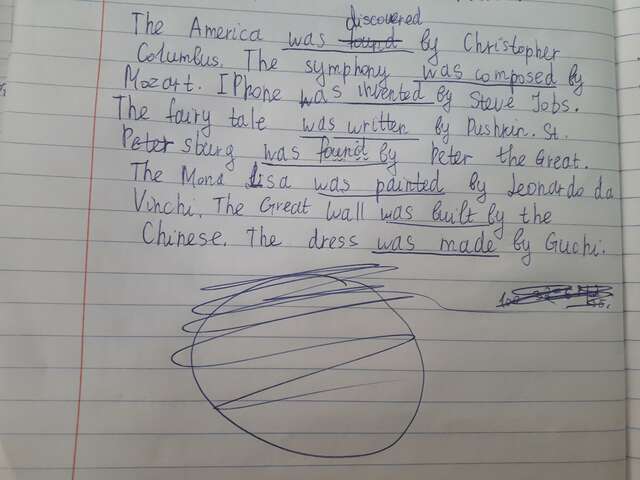 discovered
The America was found by Christopher
Columbus. The symphony was composed by
Mozart. I Phone was invented by Steve Jobs.
The fairy tale was written by Pushkin. St.
Petersburg was found by Peter the Great.
The Mona Lisa was painted by Leonardo da
Vinchi. The Great Wall was built by the
Chinese. The dress was made by Guchi.